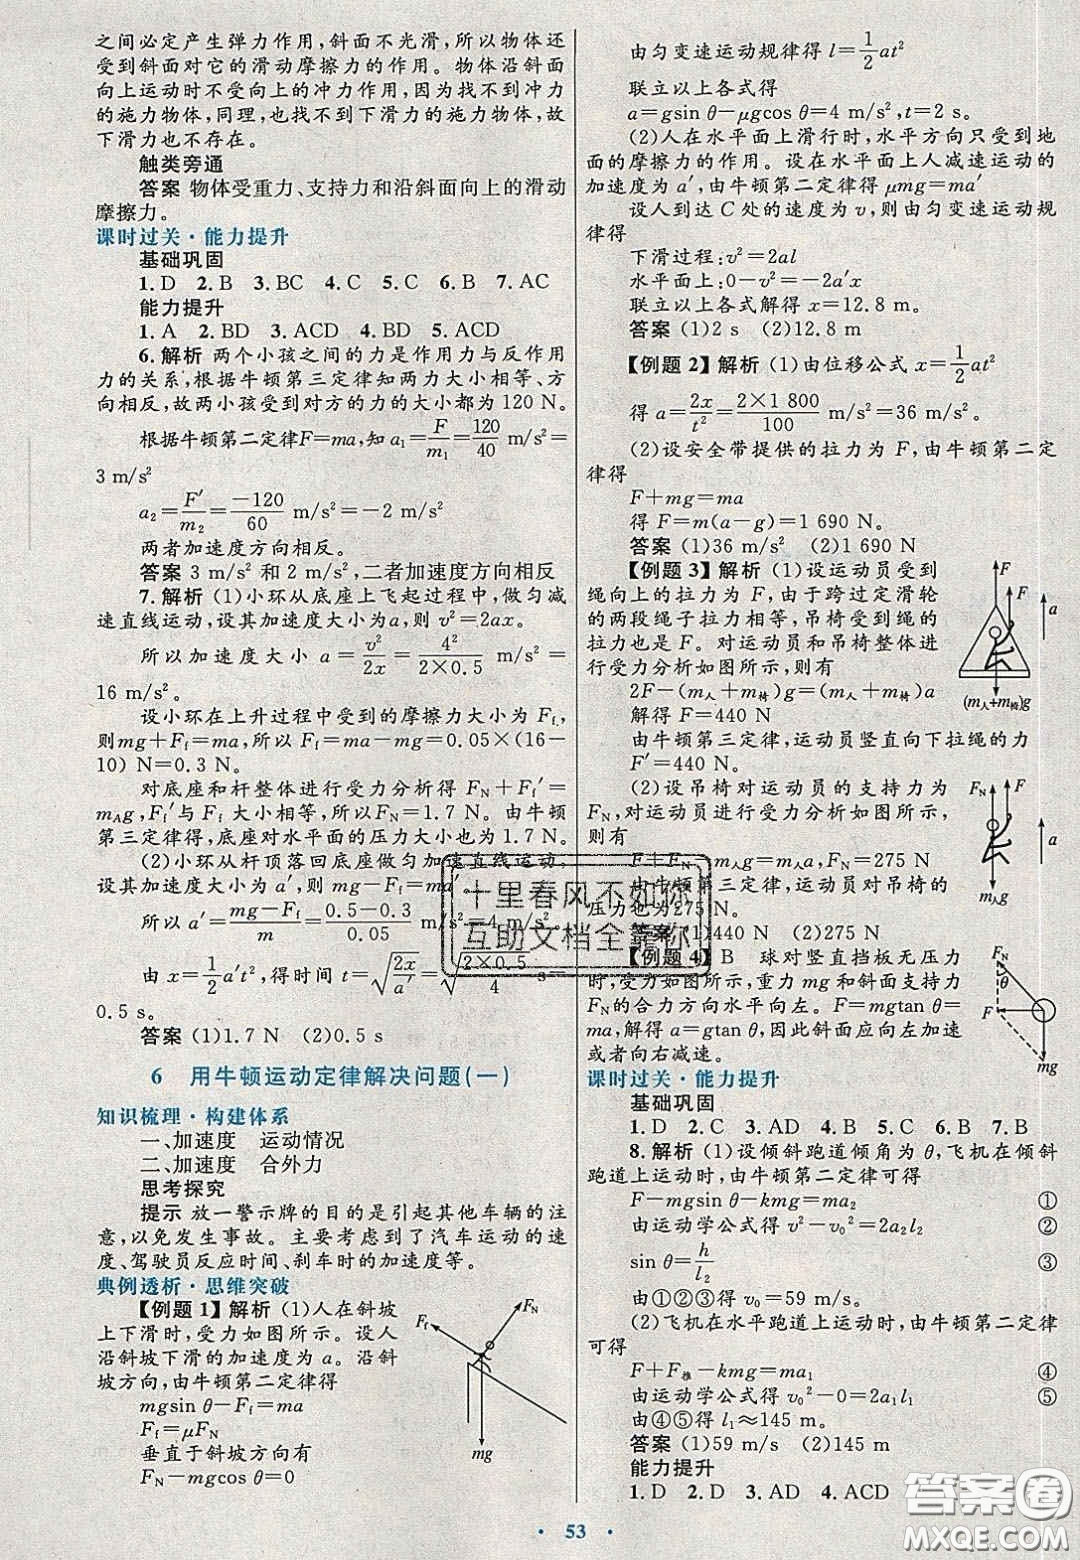 之间必定产生弹力作用，斜面不光滑，所以物体还
受到斜面对它的滑动摩擦力的作用。物体沿斜面
向上运动时不受向上的冲力作用，因为找不到冲力
的施力物体，同理，也找不到下滑力的施力物体，故
下滑力也不存在。
触类旁通
答案 物体受重力、支持力和沿斜面向上的滑动
摩擦力。
课时过关·能力提升
基础巩固
1. D 2. B 3. BC 4. C 5. C 6. B 7. AC
能力提升
1. A 2. BD 3. ACD 4. BD 5. ACD
6. 解析 两个小孩之间的力是作用力与反作用
力的关系，根据牛顿第三定律知两力大小相等、方
向相反，故两小孩受到对方的力的大小都为 120 N。
根据牛顿第二定律F=ma，知 a₁=F/m₁=120/40 m/s²=
3 m/s²
a₂=F′/m₂=−120/60 m/s²=−2 m/s²
两者加速度方向相反。
答案 3 m/s² 和 2 m/s²，二者加速度方向相反
7. 解析 (1)小环从底座上飞起过程中，做匀减
速直线运动，设其加速度大小为a，则 v²=2ax。
所以加速度大小 a=v²/2x=4²/(2×0.5) m/s²=
16 m/s²。
设小环在上升过程中受到的摩擦力大小为 Ff，
则mg+Ff=ma，所以 Ff=ma−mg=0.05×(16−
10) N=0.3 N。
对底座和杆整体进行受力分析得 FN+Ff′=
mAg，Ff′与 Ff 大小相等，所以FN=1.7 N。由牛顿
第三定律得，底座对水平面的压力大小也为 1.7 N。
(2)小环从杆顶落回底座做匀加速直线运动，
设其加速度大小为 a′，则 mg−Ff=ma′
所以 a′=(mg−Ff)/m=(0.5−0.3)/0.05 m/s²=4 m/s²。
由 x=1/2a′t²，得时间 t=√(2x/a′)=√(2×0.5/4) s=
0.5 s。
答案 (1)1.7 N (2)0.5 s
6 用牛顿运动定律解决问题(一)
知识梳理·构建体系
一、加速度 运动情况
二、加速度 合外力
思考探究
提示 放一警示牌的目的是引起其他车辆的注
意，以免发生事故。主要考虑到了汽车运动的速
度、驾驶员反应时间、刹车时的加速度等。
典例透析·思维突破
【例题 1】解析 (1)人在斜坡
上下滑时，受力如图所示。设人
沿斜坡下滑的加速度为 a。沿斜
坡方向，由牛顿第二定律得
mgsin θ−Ff=ma
Ff=μFN
垂直于斜坡方向有
FN−mgcos θ=0
Ff
FN
mg
由匀变速运动规律得 l=1/2at²
联立以上各式得
a=gsin θ−μgcos θ=4 m/s²，t=2 s。
(2)人在水平面上滑行时，水平方向只受到地
面的摩擦力的作用。设在水平面上人减速运动的
加速度为 a′，由牛顿第二定律得 μmg=ma′
设人到达 C 处的速度为 v，则由匀变速运动规
律得
下滑过程：v²=2al
水平面上：0−v²=−2a′x
联立以上各式解得 x=12.8 m。
答案 (1)2 s (2)12.8 m
【例题 2】解析 (1)由位移公式 x=1/2at²
得 a=2x/t²=2×1 800/100 m/s²=36 m/s²。
(2)设安全带提供的拉力为 F，由牛顿第二定
律得
F+mg=ma
得 F=m(a−g)=1 690 N。
答案 (1)36 m/s² (2)1 690 N
【例题 3】解析 (1)设运动员受到
绳向上的拉力为 F，由于跨过定滑轮
的两段绳子拉力相等，吊椅受到绳的
拉力也是 F。对运动员和吊椅整体进
行受力分析如图所示，则有
2F−(m人+m椅)g=(m人+m椅)a
解得 F=440 N
由牛顿第三定律，运动员竖直向下拉绳的力
F′=440 N。
F
F
a
(m人+m椅)g
(2)设吊椅对运动员的支持力为
FN，对运动员进行受力分析如图所示，
则有
F+FN−m人g=m人a，FN=275 N
由牛顿第三定律，运动员对吊椅的
压力也为275 N。
答案 (1)440 N (2)275 N
FN
F
a
m人g
【例题 4】 B 球对竖直挡板无压力
时，受力如图所示，重力 mg 和斜面支持力
FN 的合力方向水平向左。F=mgtan θ=
ma，解得 a=gtan θ，因此斜面应向左加速
或者向右减速。
FN
θ
F
mg
课时过关·能力提升
基础巩固
1. D 2. C 3. AD 4. B 5. C 6. B 7. B
8. 解析 (1)设倾斜跑道倾角为 θ，飞机在倾斜
跑道上运动时，由牛顿第二定律可得
F−mgsin θ−kmg=ma₂ ①
由运动学公式得 v²−v₀²=2a₂l₂ ②
sin θ=h/l₂ ③
由①②③得 v₀=59 m/s。
(2)飞机在水平跑道上运动，由牛顿第二定律
可得
F+F推−kmg=ma₁ ④
由运动学公式得 v₀²−0=2a₁l₁ ⑤
由④⑤得 l₁≈145 m。
答案 (1)59 m/s (2)145 m
能力提升
1. D 2. D 3. AD 4. ACD
十里春风不如你
互助文档全靠你
答案圈
MXQE.COM
· 53 ·